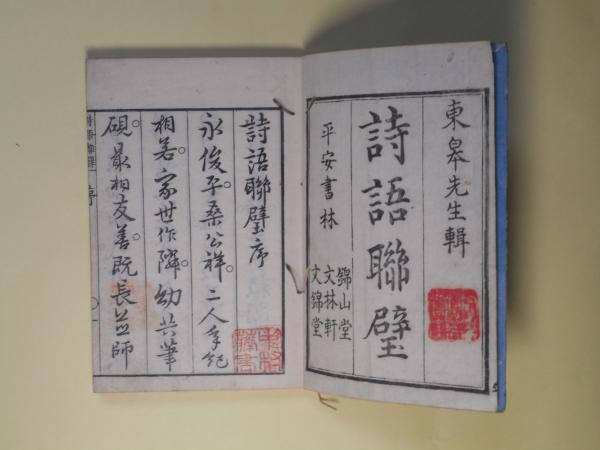 東皐先生輯
詩語聯璧
平安書林
錦山堂
文林軒
文錦堂
詩語聯璧序
永俊平桑公祥。二人年紀
相若。家世作隣。幼共筆
硯。最相友善。既長並師
序